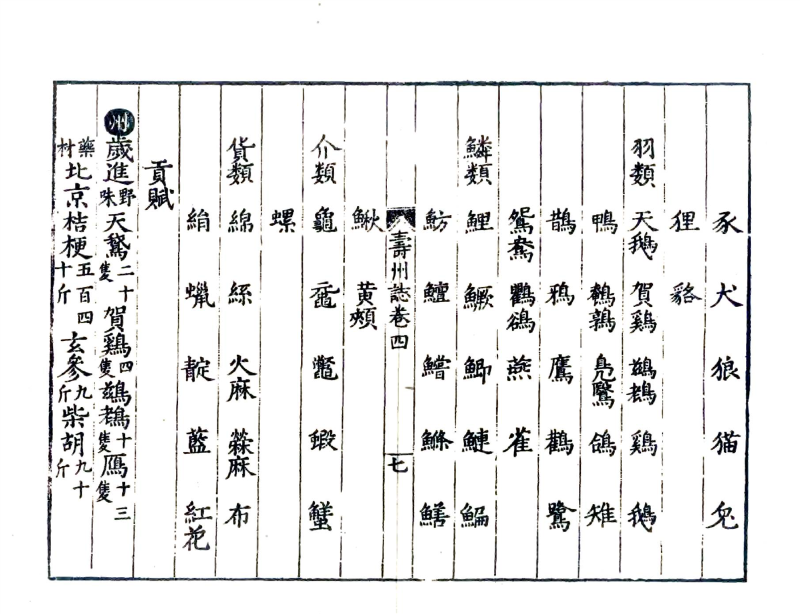 豕 犬 狼 猫 兔
狸 貉
羽類 天鵝 賀鷄 鷀鶿 鷄 鵝
鴨 鵪鶉 鳬鷖 鴿 雉
鵲 鴉 鷹 鸛 鷺
鴛鴦 鸜鵒 燕 雀
鱗類 鯉 鱖 鯽 鰱 鯿
魴 鱣 鱛 鰷 鱔
鰍 黄頰
壽州誌卷四 七
介類 龜 黿 鼈 蝦 蟹
螺
貨類 綿 絲 火麻 䔳麻 布
絹 蠟 靛 藍 紅花
貢賦
州歲進野味天鵝二十隻賀鷄四隻鷀鶿十隻鴈十三隻
藥材北京桔梗五百四十斤玄參九斤柴胡九十斤